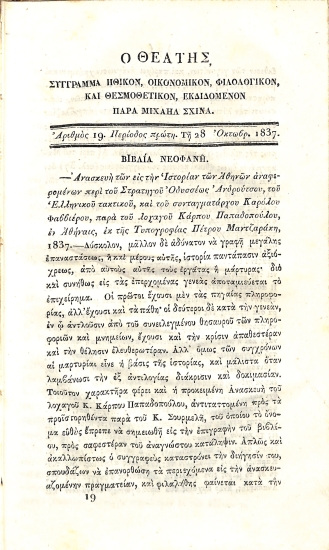 Ο ΘΕΑΤΗΣ
ΣΥΓΓΡΑΜΜΑ ΗΘΙΚΟΝ, ΟΙΚΟΝΟΜΙΚΟΝ, ΦΙΛΟΛΟΓΙΚΟΝ,
ΚΑΙ ΘΕΣΜΟΘΕΤΙΚΟΝ, ΕΚΔΙΔΟΜΕΝΟΝ
ΠΑΡΑ ΜΙΧΑΗΛ ΣΧΙΝΑ.
Ἀριθμὸς 19. Περίοδος πρώτη. Τῇ 28 Ὀκτωβρ. 1837.
ΒΙΒΛΙΑ ΝΕΟΦΑΝΗ.
—Ἀνασκευὴ τῶν εἰς τὴν Ἱστορίαν τῶν Ἀθηνῶν ἀναφε-
ρομένων περὶ τοῦ Στρατηγοῦ Ὀδυσσέως Ἀνδρούτσου, τοῦ
Ἑλληνικοῦ τακτικοῦ, καὶ τοῦ συνταγματάρχου Καρόλου
Φαββιέρου, παρὰ τοῦ λοχαγοῦ Κάρπου Παπαδοπούλου,
ἐν Ἀθήναις, ἐκ τῆς Τυπογραφίας Πέτρου Μαντζαράκη,
1837.—Δύσκολον, μᾶλλον δὲ ἀδύνατον νὰ γραφῇ μεγάλης
ἐπαναστάσεως, ἢ καὶ μέρους αὐτῆς, ἱστορία παντάπασιν ἀξιό-
χρεως, ἀπὸ αὐτοὺς αὐτῆς τοὺς ἐργάτας ἢ μάρτυρας· διὸ
καὶ συνήθως εἰς τὰς ἐπερχομένας γενεὰς ἀποταμιεύεται τὸ
ἐπιχείρημα. Οἱ πρῶτοι ἔχουσι μὲν τὰς πηγαίας πληροφο-
ρίας, ἀλλ' ἔχουσι καὶ τὰ πάθη· οἱ δεύτεροι δὲ κατὰ τὴν γενεάν,
ἐν ᾧ ἀντλοῦσιν ἀπὸ τοῦ συνειλεγμένου θησαυροῦ τῶν πληρο-
φοριῶν καὶ μνημείων, ἔχουσι καὶ τὴν κρίσιν ἀπαθεστέραν
καὶ τὴν θέλησιν ἐλευθερωτέραν. Ἀλλ' ὅμως τῶν συγχρόνων
αἱ μαρτυρίαι εἶνε ἡ βάσις τῆς ἱστορίας, καὶ μάλιστα ὅταν
λαμβάνωσι τὴν ἐξ ἀντιλογίας διάκρισιν καὶ δοκιμασίαν.
Τοιοῦτον χαρακτῆρα φέρει καὶ ἡ προκειμένη Ἀνασκευὴ τοῦ
λοχαγοῦ Κ. Κάρπου Παπαδοπούλου, ἀντιταττομένη πρὸς τὰ
προϊστορηθέντα παρὰ τοῦ Κ. Σουρμελῆ, τοῦ ὁποίου τὸ ὄνο-
μα εὐθὺς ἔπρεπε νὰ σημειωθῇ εἰς τὴν ἐπιγραφὴν τοῦ βιβλί-
ου, πρὸς σαφεστέραν τοῦ ἀναγνώστου κατάληψιν. Ἁπλῶς καὶ
ἀκαλλωπίστως ὁ συγγραφεὺς καταστρόνει τὴν διήγησίν του,
σπουδάζων νὰ ἐπανορθώσῃ τὰ περιεχόμενα εἰς τὴν ἀνασκευ-
αζομένην πραγματείαν, καὶ φιλαλήθης φαίνεται κατὰ τὴν
19